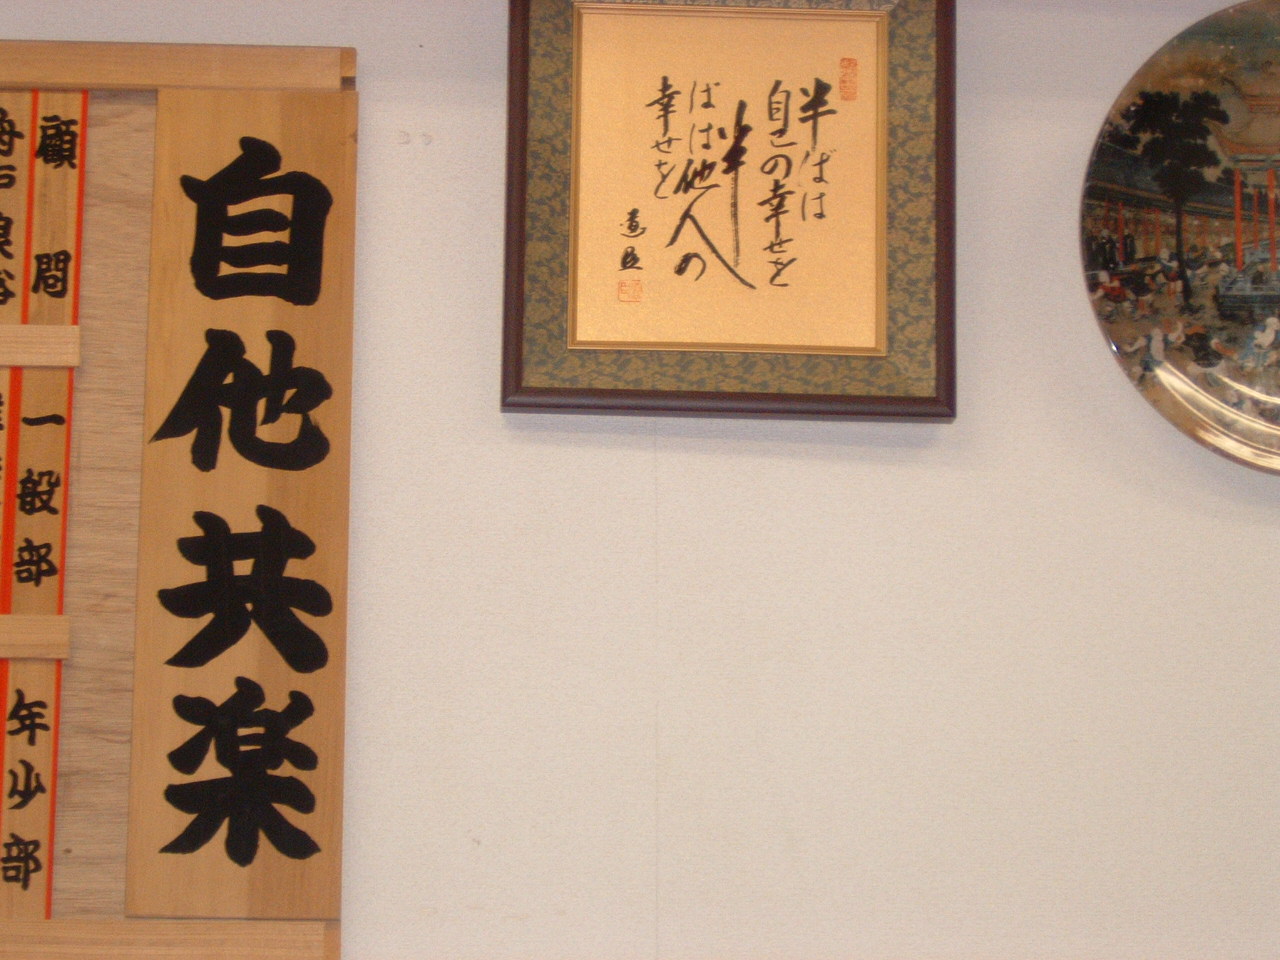 自他共楽
顧問
一般部
年少部
半ばは
自己の幸せを
半
ばは他人の
幸せを
道臣